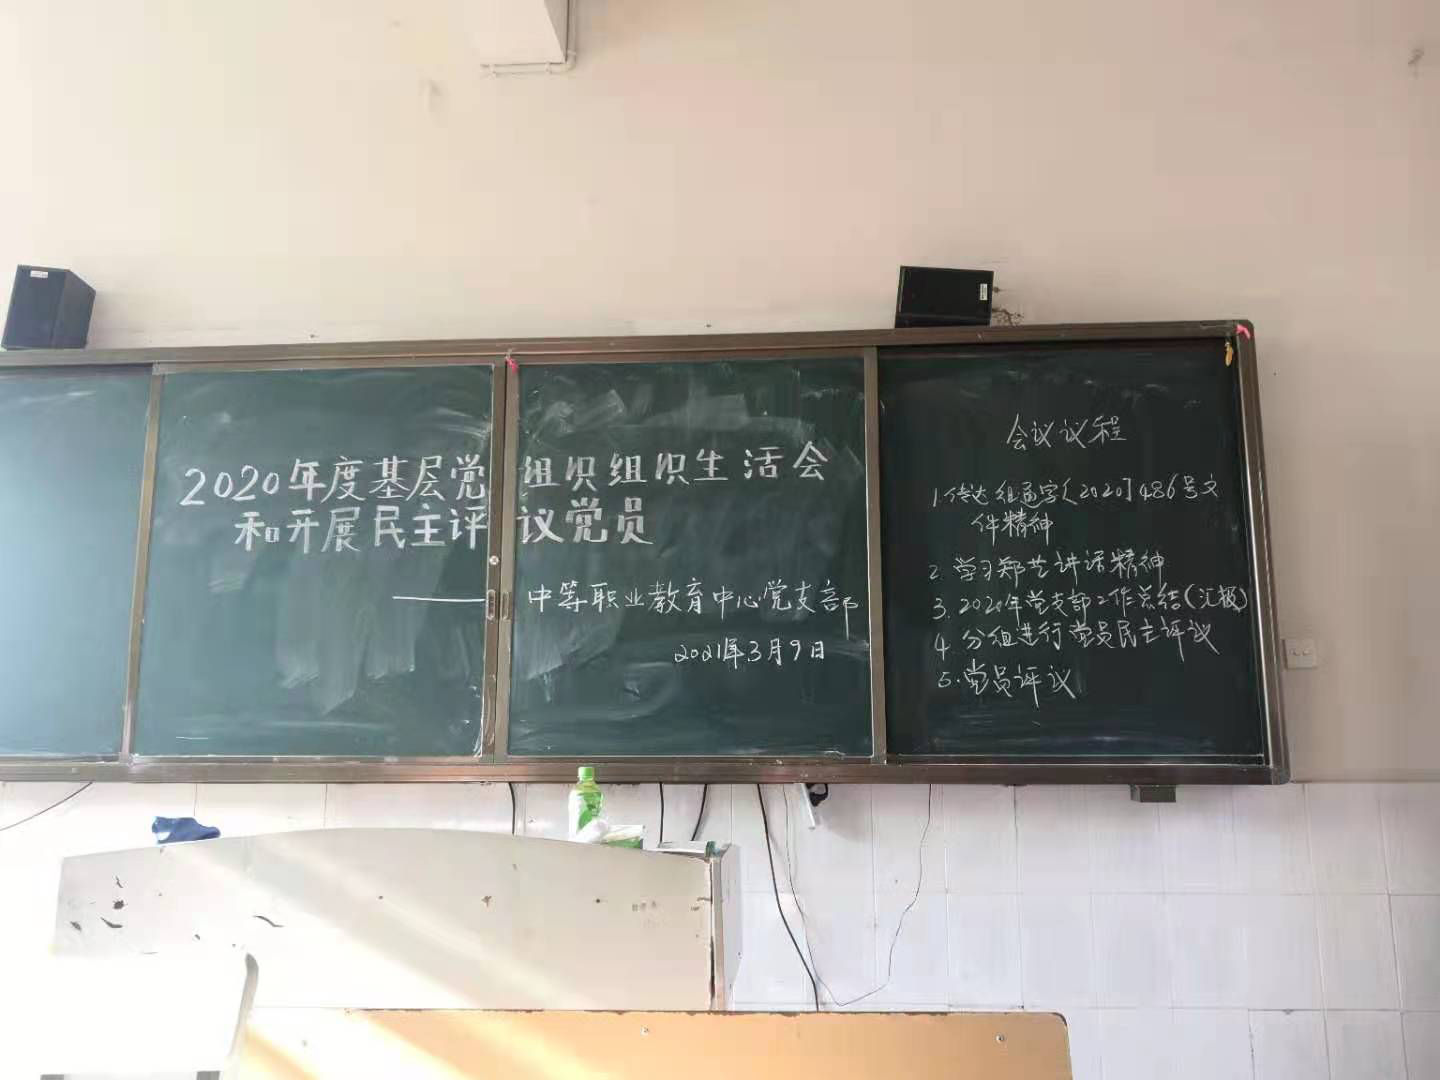 2020年度基层党组织组织生活会
和开展民主评议党员
——中等职业教育中心党支部
2021年3月9日
会议议程
1.传达组通字〔2020〕486号文
件精神
2.学习郑艺讲话精神
3.2020年党支部工作总结(汇报)
4.分组进行党员民主评议
5.党员评议